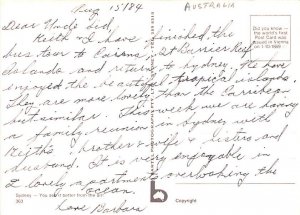 Aug 15/84
AUSTRALIA
Dear Uncle Sid
Keith & I have finished the
bus tour to Cairns, Gt Barrier Reef
Islands and return to Sydney. We have
enjoyed the beautiful tropical islands.
They are more lovely than the Carribean
but similar. This week we are having
a family reunion in Sydney with
brother & wife & sister and
husband. It is very enjoyable in
a lovely apartment overlooking the
ocean.
Love Barbara
Did you know -
the world's first
Post Card was
issued in Vienna
on 1-10-1869
Sydney — You
363
Copyright